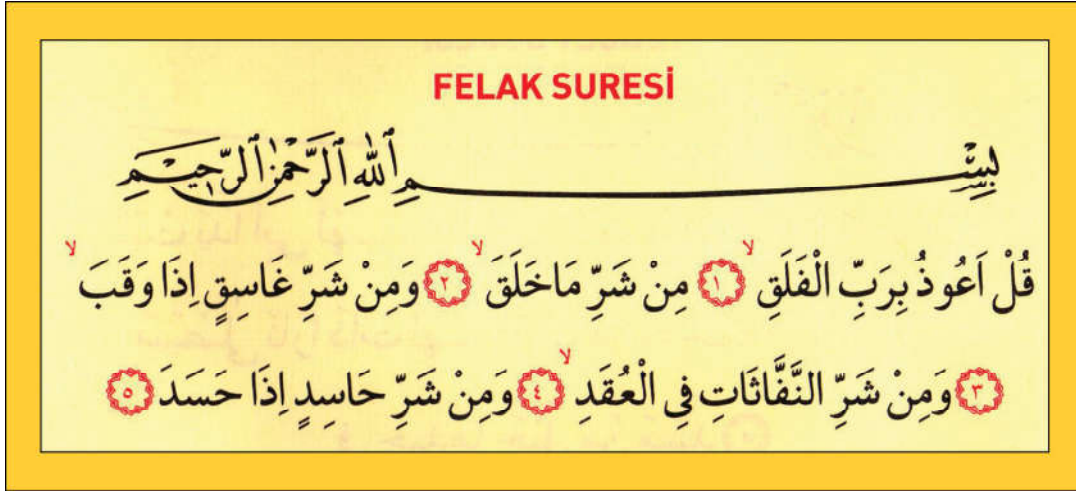 FELAK SURESİ
بِسْمِ ٱللّٰهِ ٱلرَّحْمٰنِ ٱلرَّحِيمِ
قُلْ اَعُوذُ بِرَبِّ الْفَلَقِۙ ﴿١﴾ مِنْ شَرِّ مَاخَلَقَۙ ﴿٢﴾ وَمِنْ شَرِّ غَاسِقٍ اِذَا وَقَبَۙ
﴿٣﴾ وَمِنْ شَرِّ النَّفَّاثَاتِ فِى الْعُقَدِۙ ﴿٤﴾ وَمِنْ شَرِّ حَاسِدٍ اِذَا حَسَدَ ﴿٥﴾